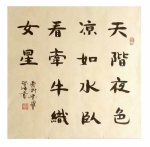 天階夜色
凉如水卧
看牽牛織
女星